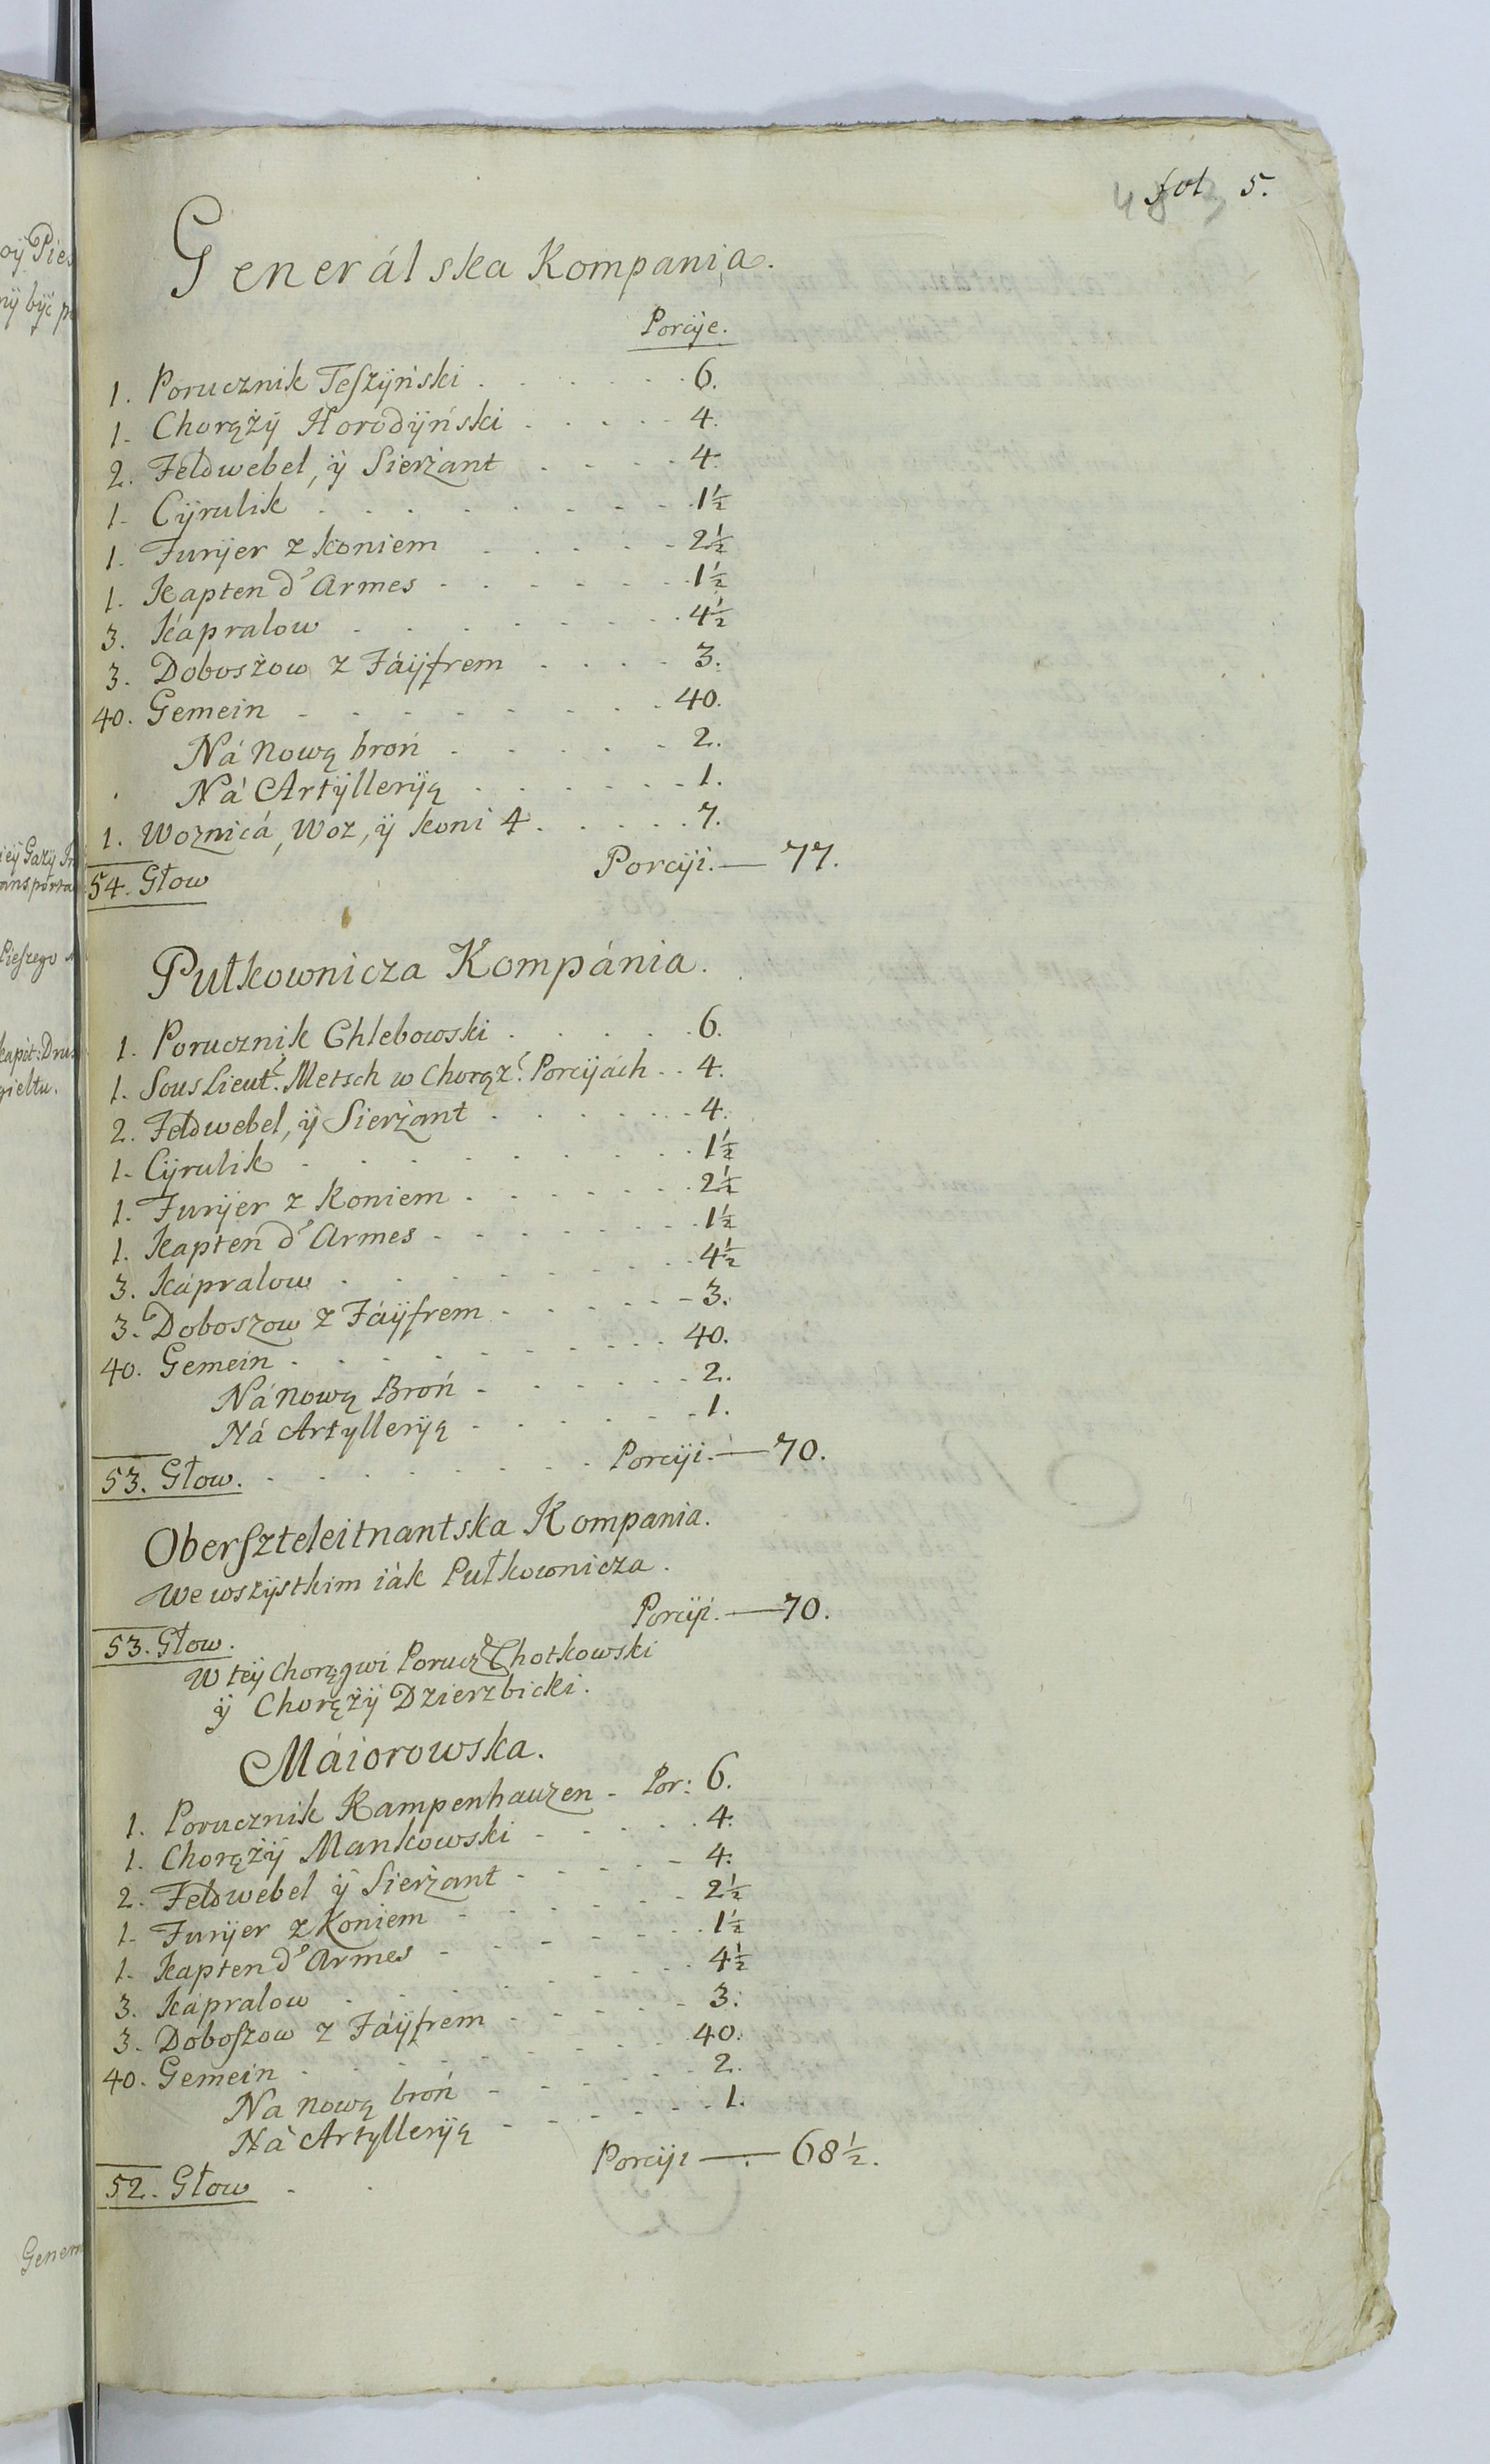 fol 5.
Generálska Kompania.
Porcÿe.
1. Porucznik Teſzÿński . . . . . . 6.
1. Chorążÿ Horodÿński . . . . . 4.
2. Feldwebel, ÿ Sierżant . . . . 4.
1. Cÿrulik . . . . . . . . 1½
1. Furÿer z koniem . . . . . 2½
1. Kapten d'Armes . . . . . . 1½
3. Kápralow . . . . . . . 4½
3. Doboszow z Fáÿfrem . . . . 3.
40. Gemein . . . . . . . . 40.
Ná nową broń . . . . . 2.
Ná Artÿllerÿą . . . . . . 1.
1. Woznicá, Woz, ÿ koni 4 . . . . . 7.
54. Głow Porcÿi. — 77.
Pułkownicza Kompánia.
1. Porucznik Chlebowski . . . . . 6.
1. Sous Lieut: Metsch w Chorąż: Porcÿách . . 4.
2. Feldwebel, ÿ Sierżant . . . . . . 4.
1. Cÿrulik . . . . . . . . . 1½
1. Furÿer z Koniem . . . . . . 2½
1. Kapten d'Armes . . . . . . 1½
3. Kápralow . . . . . . . . 4½
3. Doboszow z Fáÿfrem . . . . . 3.
40. Gemein . . . . . . . . 40.
Ná nową Broń . . . . . . 2.
Ná Artyllerÿą . . . . . . 1.
53. Głow. . . . . . . . . Porcÿi. — 70.
Oberſzteleitnantska Kompania.
We wszÿstkim iák Pułkownicza.
53. Głow. Porcÿi. — 70.
W teÿ Chorągwi Porucz: Chotkowski
ÿ Chorążÿ Dzierzbicki.
Máiorowska.
1. Porucznik Kampenhauzen - Por: 6.
1. Chorążÿ Mankowski . . . . . 4.
2. Feldwebel ÿ Sierżant . . . . . 4.
1. Furÿer z Koniem . . . . . . 2½
1. Kapten d'Armes . . . . . . 1½
3. Kápralow . . . . . . . . 4½
3. Doboſzow z Fáÿfrem . . . . . 3.
40. Gemein . . . . . . . . 40.
Na nową broń . . . . . . 2.
Ná Artyllerÿą . . . . . . 1.
52. Głow . . Porcÿi — 68½.